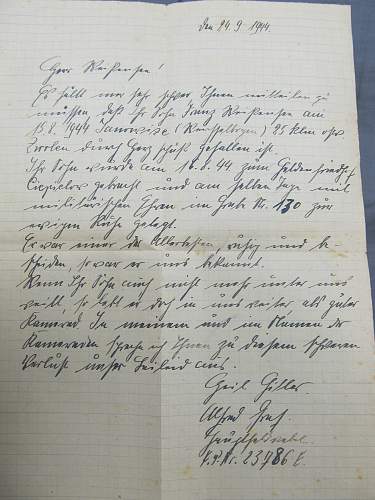 den 24.9.1944.
Herr Weikensee!
Es fällt mir sehr schwer Ihnen mitteilen zu
müssen daß Ihr Sohn Franz Weikensee am
15.8.1944 Janowice (Weichselbogen) 25 klm
durch Herzschuß gefallen ist.
Ihr Sohn wurde am 16.8.44 zum Heldenfriedhof
gebracht und am selben Tage mit
militärischen Ehren im Grabe Nr. 130 zur
ewigen Ruhe gelegt.
Er war einer der Allerbesten, ruhig und be-
scheiden, so war er uns bekannt.
Wenn Ihr Sohn auch nicht mehr unter uns
weilt, so lebt er doch in uns weiter als guter
Kamerad. In meinem und im Namen der
Kameraden spreche ich Ihnen zu diesem schweren
Verlust unser Beileid aus.
Heil Hitler
Alfred
Hauptfeldwebel.
F.P.Nr. 23786 E.